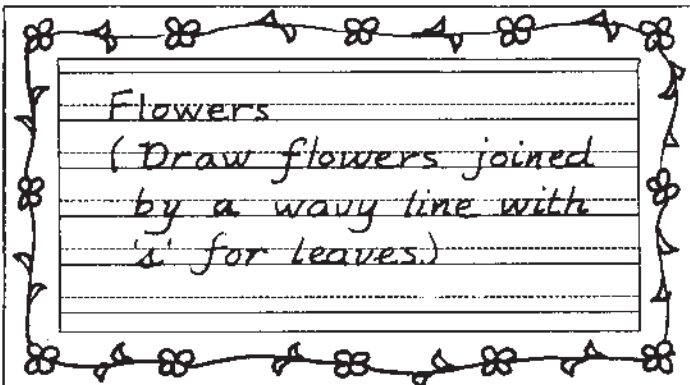 Flowers
(Draw flowers joined
by a wavy line with
's' for leaves.)